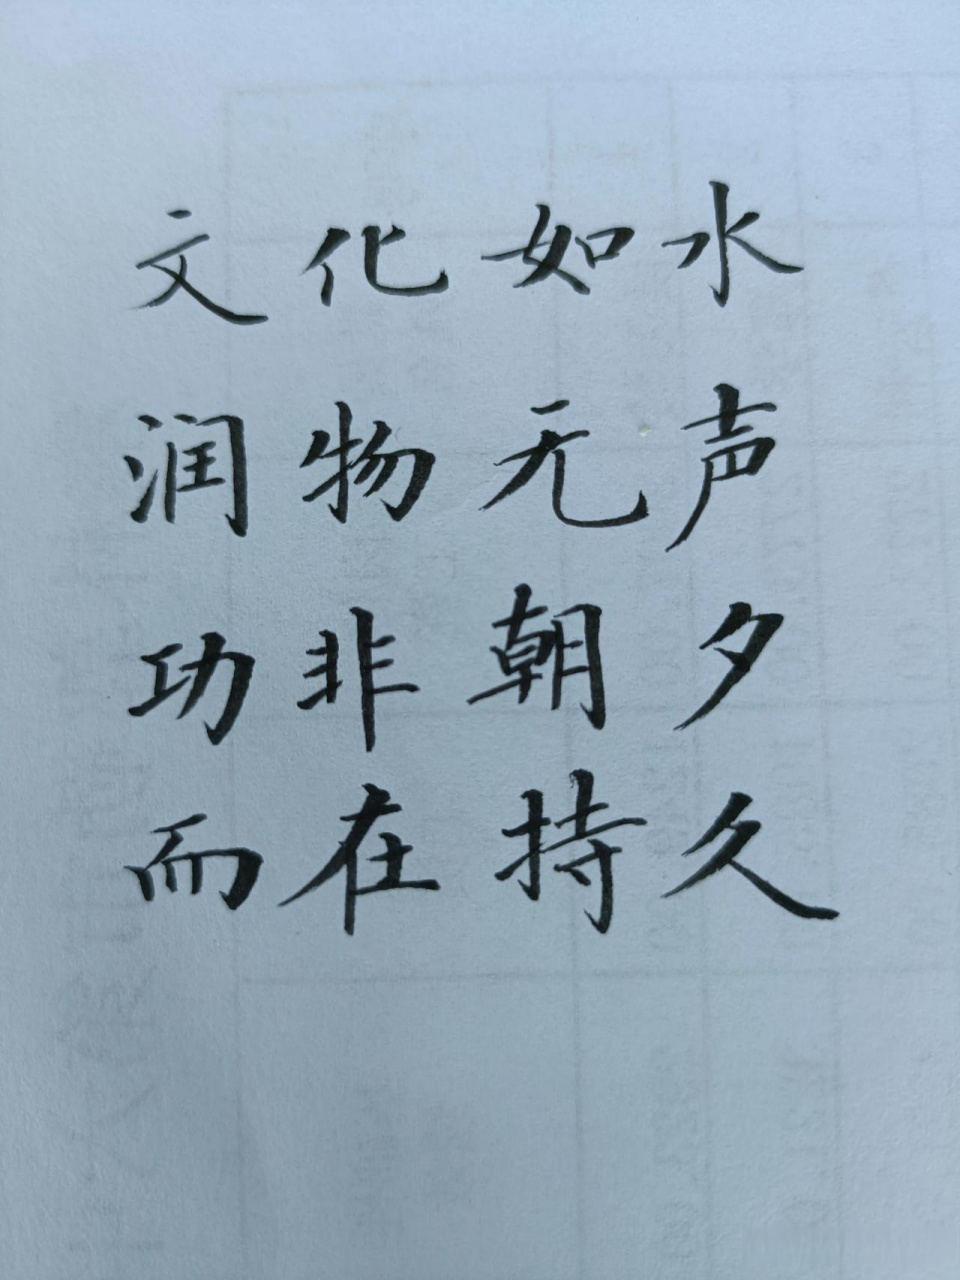 文化如水
润物无声
功非朝夕
而在持久